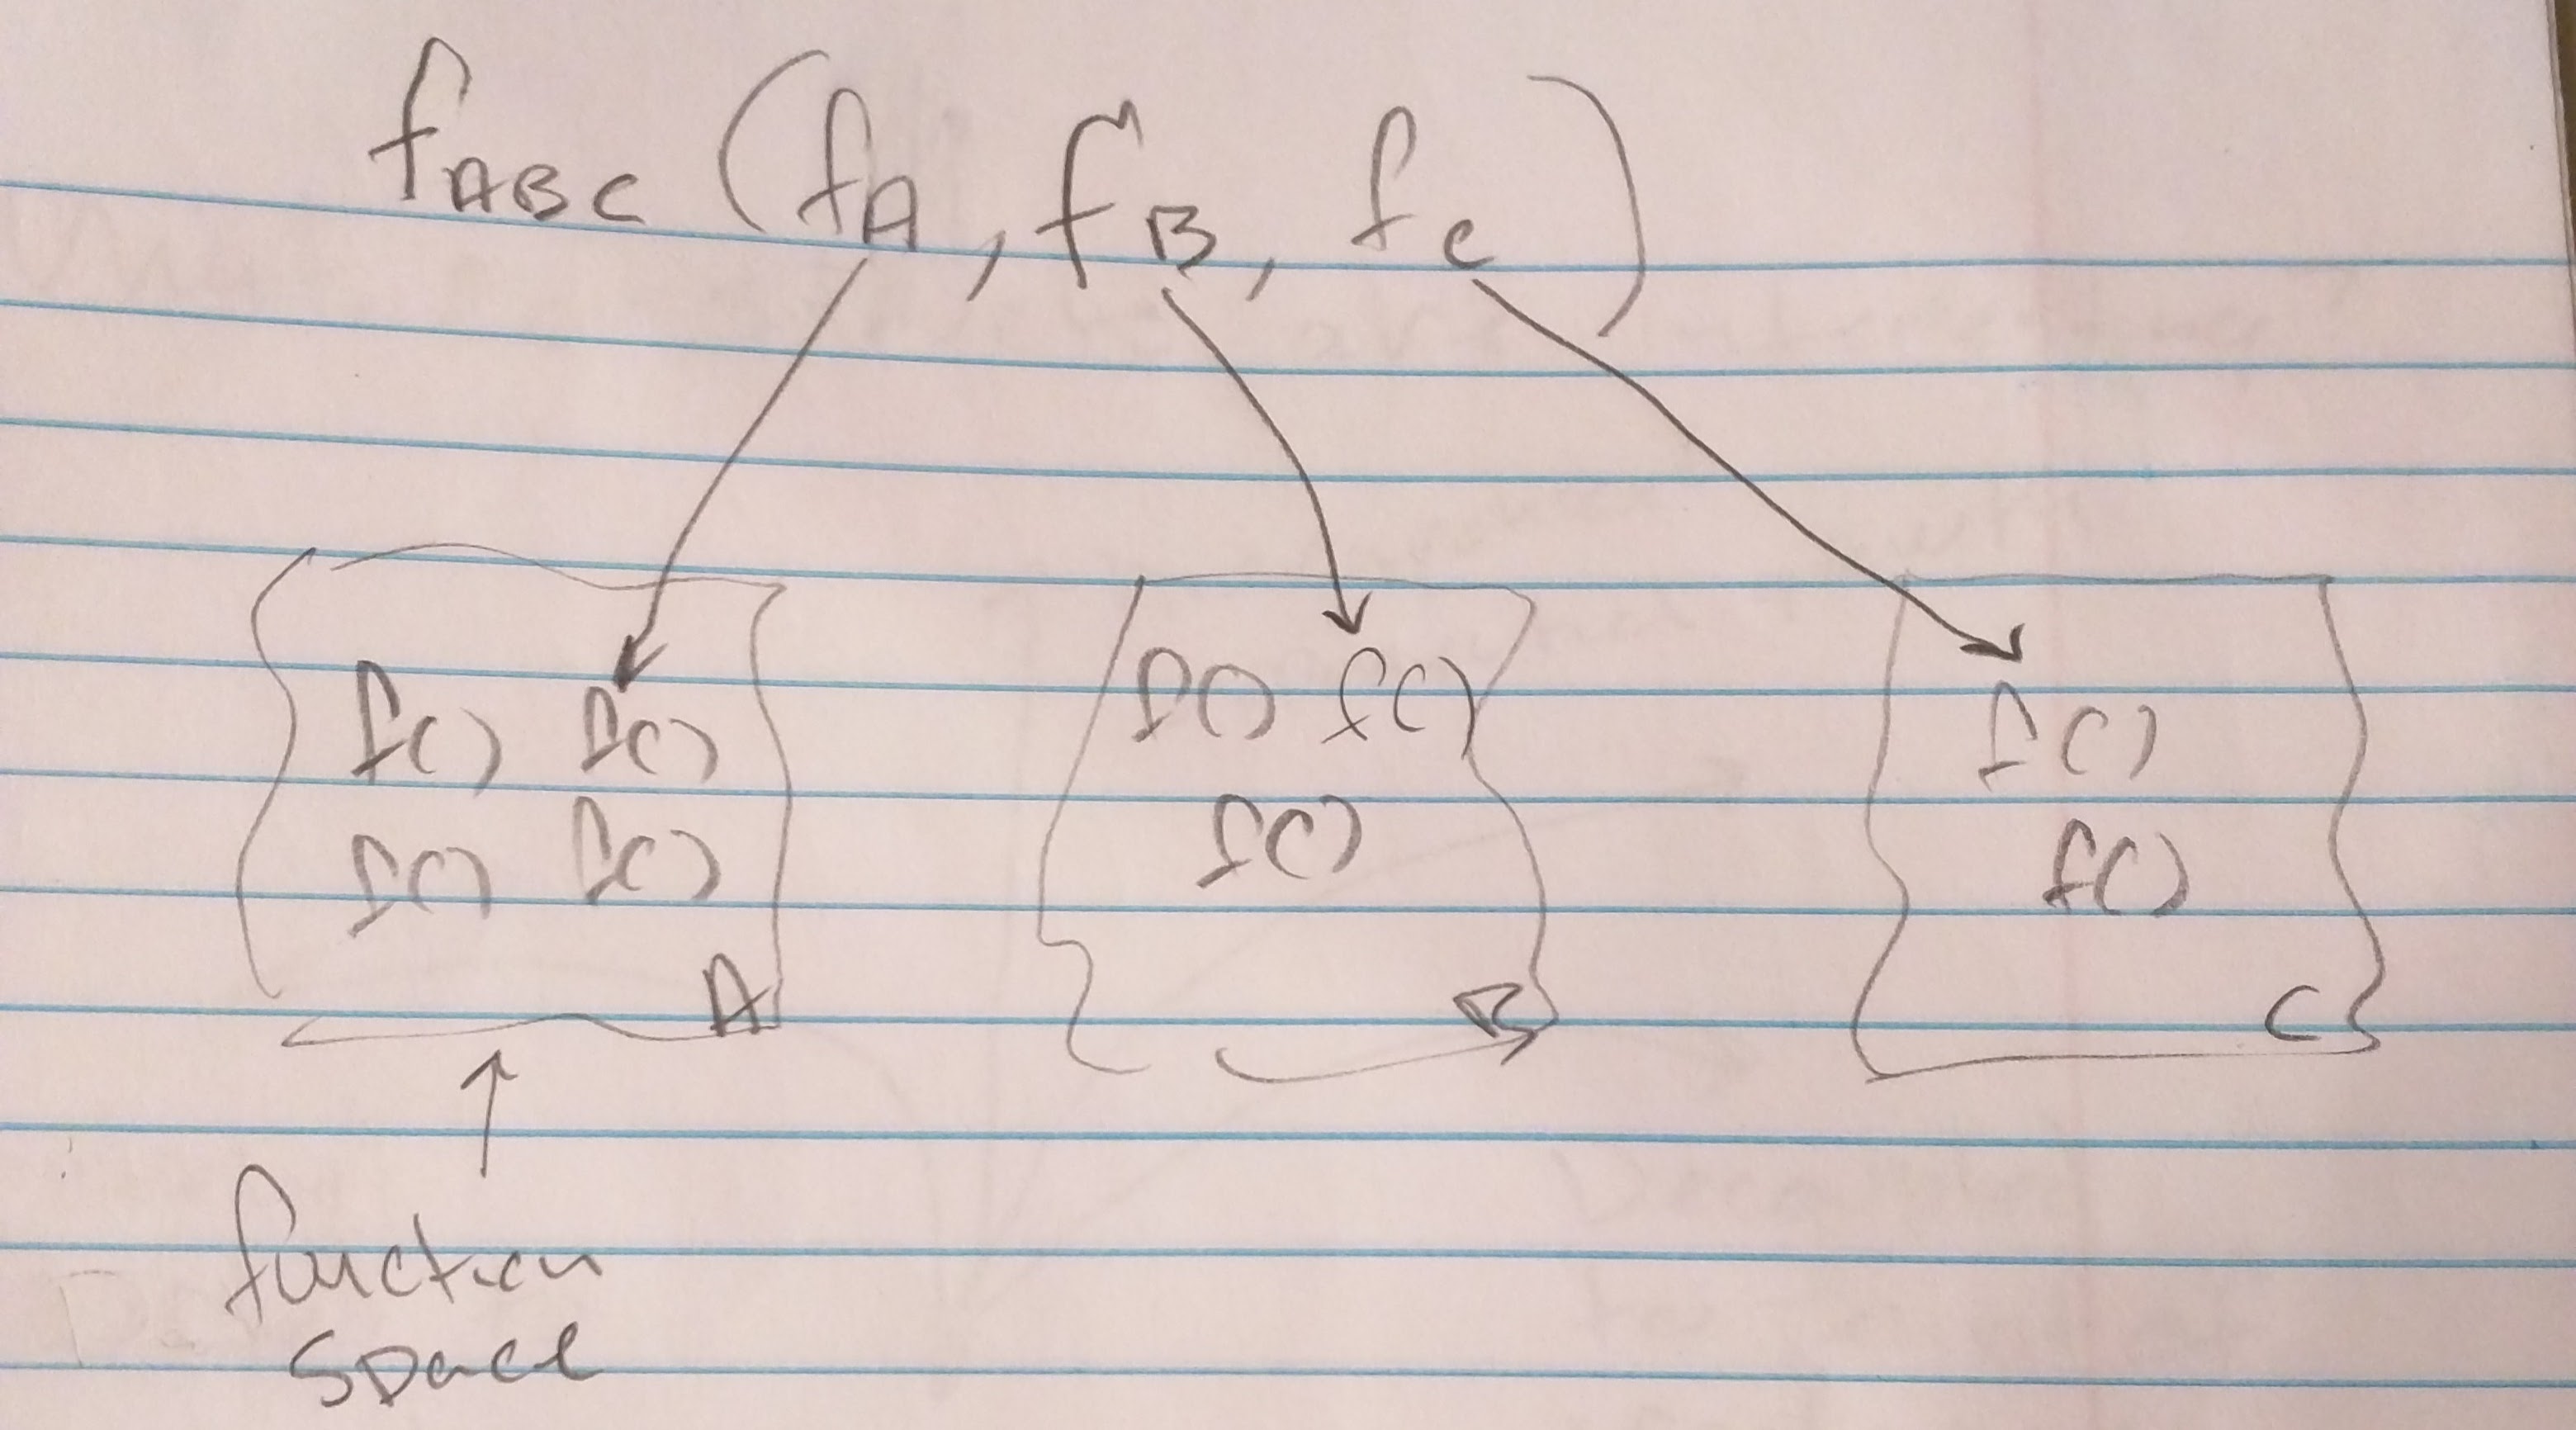 fABC (fA, fB, fC)
f() f() f() f() f()
f() f() f() f()
A B C
function
space